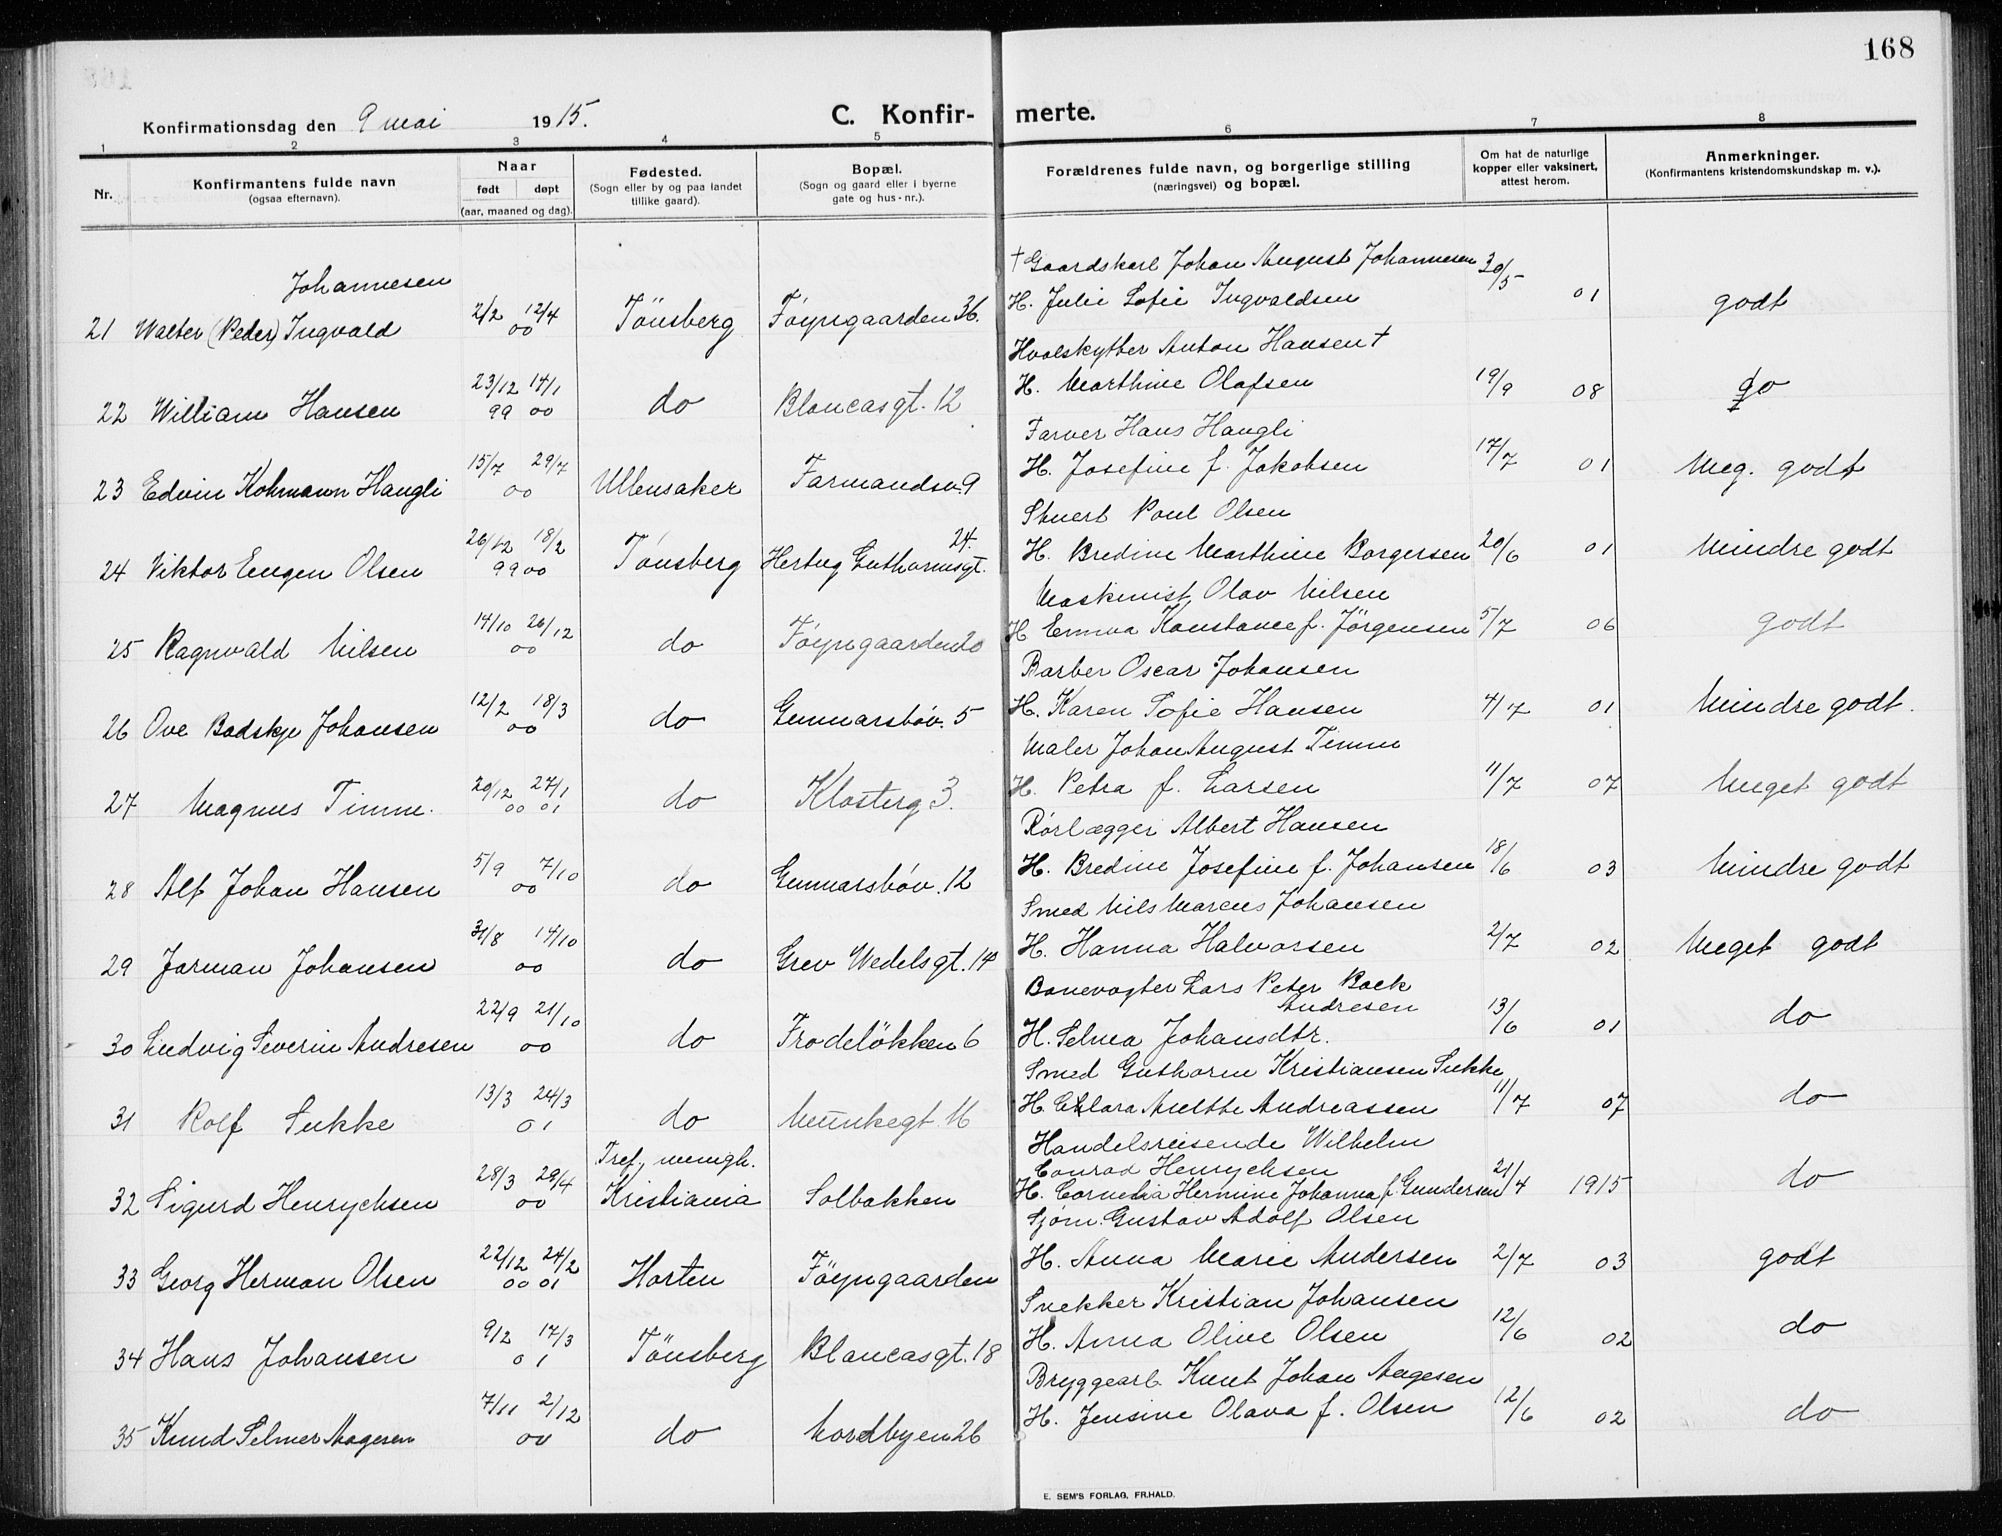 168
Konfirmationsdag den 9 mai 1915.
C. Konfir- merte.
1 2 3 4 5 6 7 8
Nr.
Konfirmantens fulde navn
(ogsaa efternavn).
Naar
født døpt
(aar, maaned og dag).
Fødested.
(Sogn eller by og paa landet
tillike gaard).
Bopæl.
(Sogn og gaard eller i byerne
gate og hus-nr.).
Forældrenes fulde navn, og borgerlige stilling
(næringsvei) og bopæl.
Om hat de naturlige
kopper eller vaksinert,
attest herom.
Anmerkninger.
(Konfirmantens kristendomskundskap m. v.).
† Gaardskarl Johan August Johannesen 30/5
Johannesen
H. Julie Sofie Ingvaldsen 01 godt
21 Walter (Peder) Ingvald 2/2 12/4 00 Tönsberg Föyngaarden 36.
Hvalskytter Anton Hansen †
H. Marthine Olafsen 19/9 08 do
22 William Hansen 23/12 99 14/1 00 do Blancasgt. 12
Farver Hans Haugli
H. Josefine f. Jakobsen 17/7 01 Meg. godt
23 Edvin Kohmann Haugli 15/7 29/7 00 Ullensaker Farmandsv. 9
Stuert Paul Olsen
H. Bredine Marthine Borgersen 20/6 01 Mindre godt
24 Viktor Eugen Olsen 26/12 99 18/2 00 Tönsberg Hertug Guthormsgt. 24.
Maskinist Olav Nilsen
H Emma Konstance f. Jörgensen 5/7 06 godt
25 Ragnvald Nilsen 14/10 26/12 00 do Föyngaarden 20
Barber Oscar Johansen
H. Karen Sofie Hansen 4/7 01 Mindre godt.
26 Ove Badskje Johansen 12/2 18/3 00 do Gunnarsböv. 5
Maler Johan August Timm
H. Petra f. Larsen 11/7 07 Meget godt
27 Magnus Timm. 20/12 00 27/1 01 do Klosterg 3.
Rörlægger Albert Hansen
H. Bredine Josefine f. Johansen 18/6 03 Mindre godt
28 Alf Johan Hansen 5/9 7/10 00 do Gunnarsböv. 12
Smed Nils Marcus Johansen
H. Hanna Halvorsen 2/7 02 Meget godt
29 Jarman Johansen 31/8 14/10 00 do Grev Wedelsgt. 14
Banevogter Lars Peter Back
Andresen
H. Selma Johansdtr. 13/6 01 do
30 Ludvig Severin Andresen 22/9 21/10 00 do Frodelökken 6
Smed Guthorm Kristiansen Sukke
H. Clara Anette Andreassen 11/7 07 do
31 Rolf Sukke 13/3 24/3 01 do Munkegt. 16
Handelsreisende Wilhelm
Conrad Henrychsen
H. Cornelia Hermine Johanna f. Gundersen 21/4 1915 do
32 Sigurd Henrychsen 28/3 29/4 00 Tref. menigh. Kristiania Solbakken
Sjöm. Gustav Adolf Olsen
H. Anna Marie Andersen 2/7 03 godt
33 Georg Herman Olsen 22/12 00 24/2 01 Horten Föyngaarden
Snekker Kristian Johansen
H. Anna Olive Olsen 12/6 02 do
34 Hans Johansen 9/2 17/3 01 Tönsberg Blancasgt. 18
Bryggearb. Knut Johan Aagesen
H. Jensine Olava f. Olsen 12/6 02 do
35 Knud Selmer Aagesen 7/11 2/12 00 do Nordbyen 26
E. SEM'S FORLAG, FR.HALD.